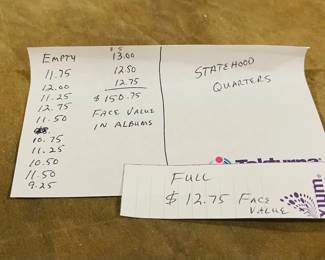 EMPTY
11.75
12.00
11.25
12.75
11.50
10.75
11.25
10.50
11.50
9.25
$ 5
13.00
12.50
12.75
$150.75
FACE VALUE
IN ALBUMS
STATEHOOD
QUARTERS
FULL
$ 12.75 FACE
VALUE